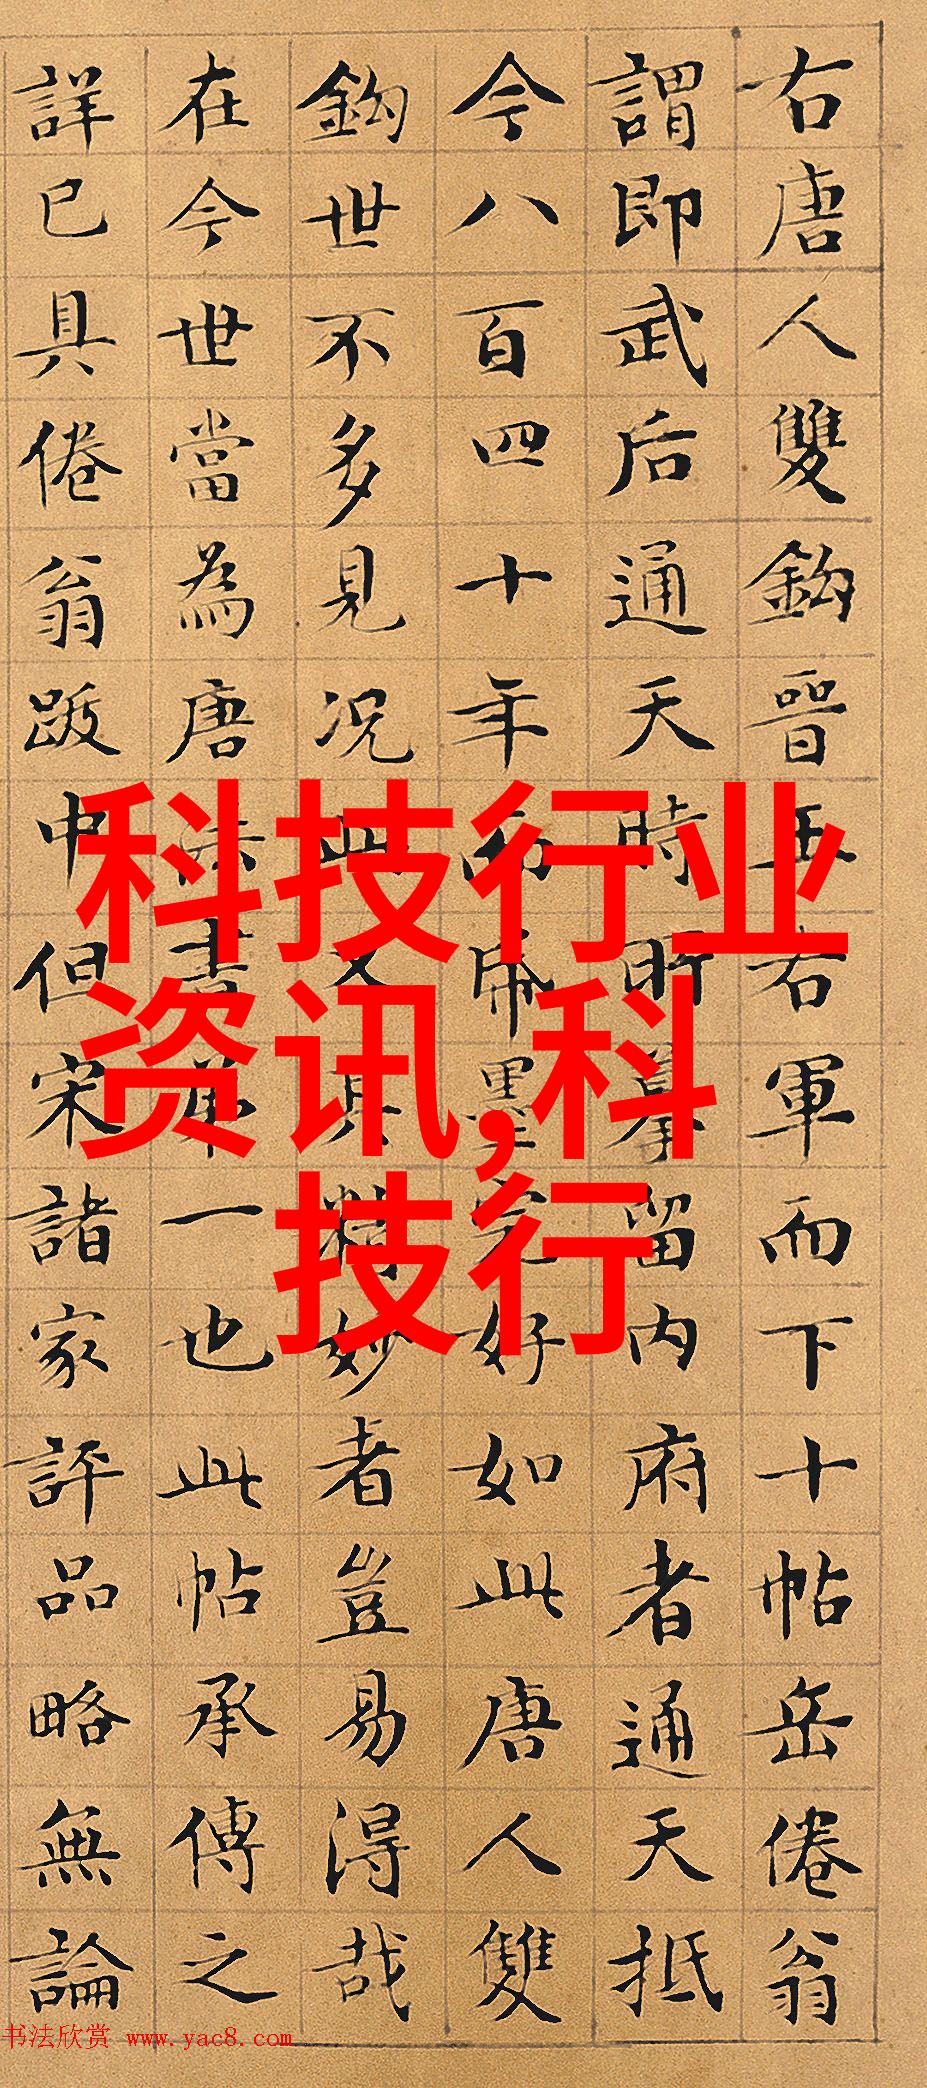 右唐人雙鈎晉王右軍而下十帖岳倦翁
謂即武后通天時所摹留内府者通天抵
今八百四十年而帋墨完好如此唐人雙
鈎世不多見况此又其精妙者豈易得哉
在今世當為唐法書第一也此帖承傳之
詳已具倦翁跋中但宋諸家評品略無論
科技行业
资讯,科
技行
书法欣赏 www.yac8.com